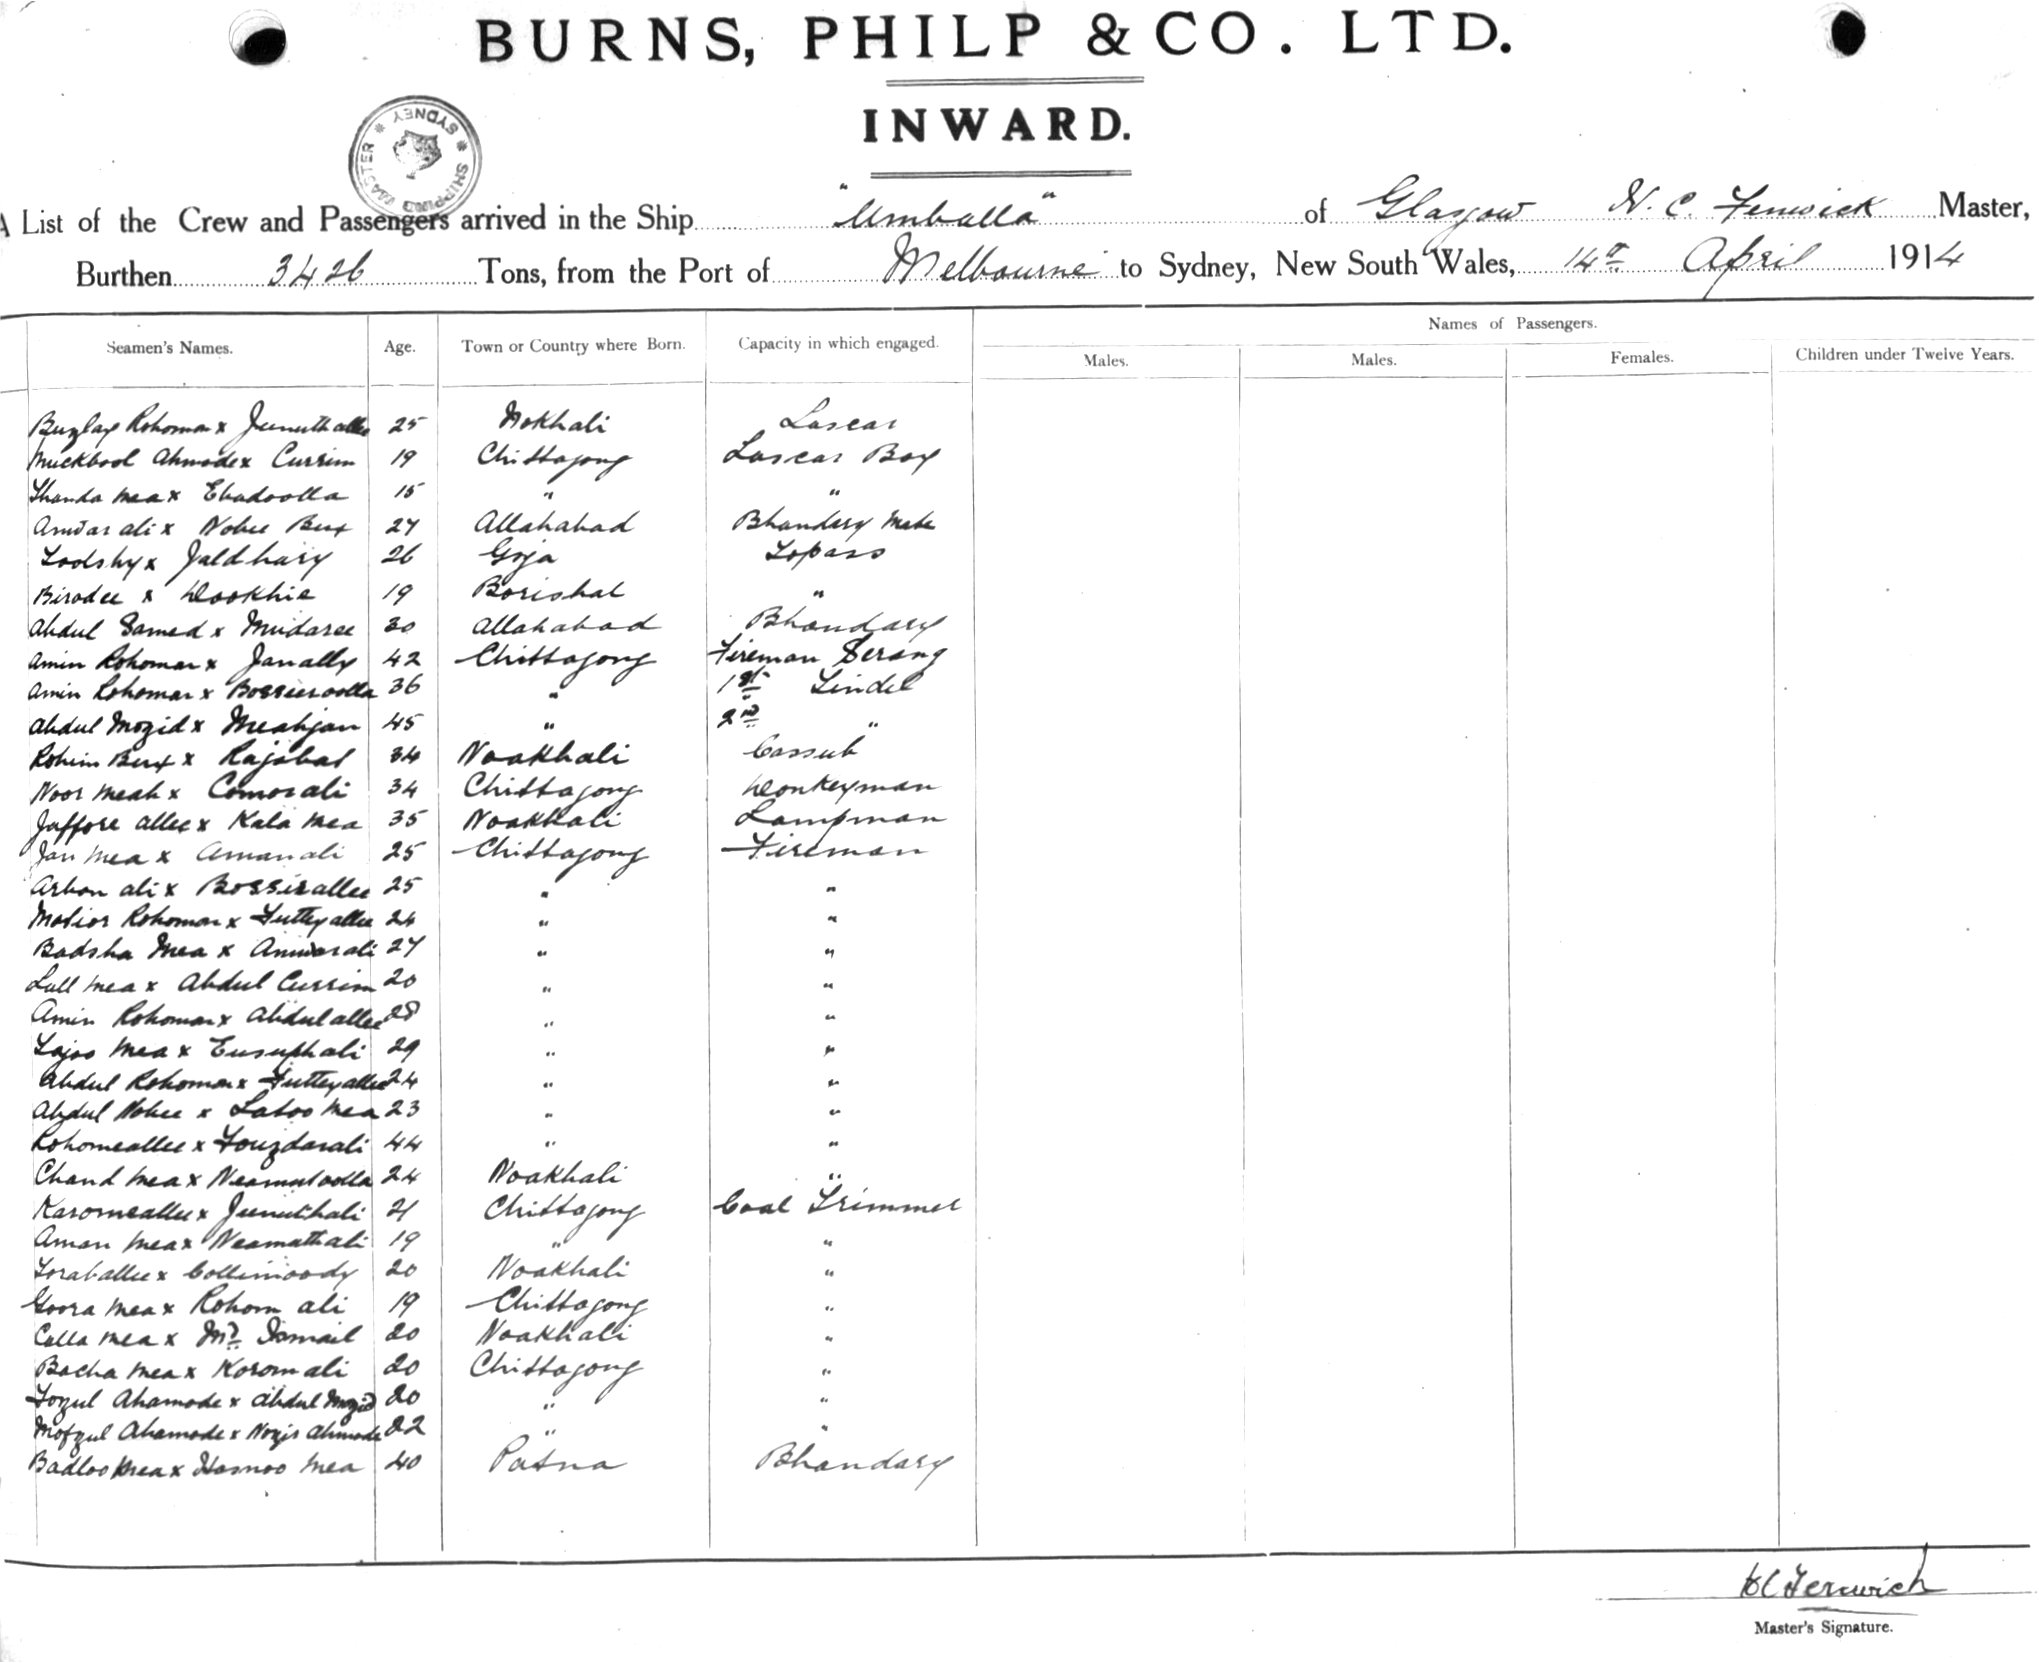 BURNS, PHILP & CO. LTD.
INWARD.
SHIPPING MASTER * SYDNEY *
A List of the Crew and Passengers arrived in the Ship "Umballa" of Glasgow N. C. Fenwick Master,
Burthen 3426 Tons, from the Port of Melbourne to Sydney, New South Wales, 14th April 1914
Names of Passengers.
Seamen's Names. Age. Town or Country where Born. Capacity in which engaged. Males. Males. Females. Children under Twelve Years.
Buzlay Rohoman x Junuthallee 25 Nokhali Lascar
Muckbool Ahmode x Currim 19 Chittagong Lascar Boy
Thanda Mea x Ebadoolla 15 " "
Anwar ali x Nobee Bux 27 Allahabad Bhandary Mate
Toolshy x Jaldhary 26 Goja Topass
Birodee x Dookhie 19 Borishal "
Abdul Samed x Mudaree 30 Allahabad Bhandary
Amin Rohoman x Janally 42 Chittagong Fireman Serang
Amin Rohoman x Bossieroolla 36 " 1st Tindel
Abdul Mozid x Meahjan 45 " 2nd "
Rohim Bux x Rajabal 34 Noakhali Cassub
Noor Meah x Comorali 34 Chittagong Donkeyman
Jaffore allee x Kala Mea 35 Noakhali Lampman
Jan Mea x Amanali 25 Chittagong Fireman
Arban ali x Bossirallee 25 " "
Motior Rohoman x Futteyallee 24 " "
Badsha Mea x Anwarali 27 " "
Lall Mea x Abdul Currim 20 " "
Amin Rohoman x Abdulallee 28 " "
Tajoo Mea x Eusuphali 29 " "
Abdul Rohoman x Futteyallee 24 " "
Abdul Nobee x Latoo Mea 23 " "
Rohomeallee x Fouzdarali 44 " "
Chand Mea x Neamutoolla 24 Noakhali "
Karomeallee x Junuthali 21 Chittagong Coal Trimmer
Aman Mea x Neamathali 19 " "
Toraballee x Collimoody 20 Noakhali "
Goora Mea x Rohom ali 19 Chittagong "
Calla Mea x Md Ismail 20 Noakhali "
Bacha Mea x Korom ali 20 Chittagong "
Fozul Ahamode x Abdul Mozid 20 " "
Mofzul Ahamode x Nozir Ahmode 22 " "
Badloo Mea x Hosnoo Mea 40 Patna Bhandary
N C Fenwick
Master's Signature.